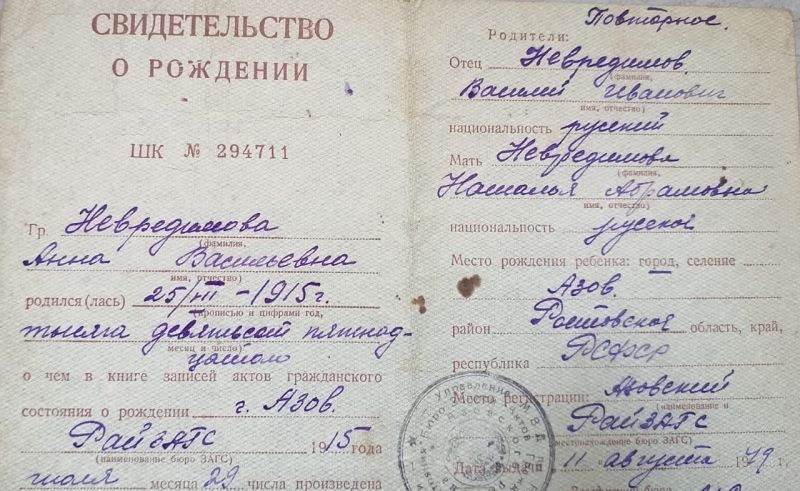 СВИДЕТЕЛЬСТВО
О РОЖДЕНИИ
ШК № 294711
Гр. Невредимова
(фамилия,
Анна Васильевна
имя, отчество)
родился(лась) 25/III - 1915 г.
(прописью и цифрами год,
тысяча девятьсот пятнад-
месяц и число)
цатого
о чем в книге записей актов гражданского
состояния о рождении г. Азов.
РайЗАГС 1915 года
(наименование бюро ЗАГС)
июля месяца 29 числа произведена
Повторное.
Родители:
Отец Невредимов
(фамилия,
Василий Иванович
имя, отчество)
национальность русский
Мать Невредимова
(фамилия,
Наталья Абрамовна
имя, отчество)
национальность русской
Место рождения ребенка: город, селение
Азов.
район Ростовской область, край,
республика РСФСР
Место регистрации: Азовский
(наименование и
РайЗАГС
местонахождение бюро ЗАГС)
Дата выдачи 11 августа